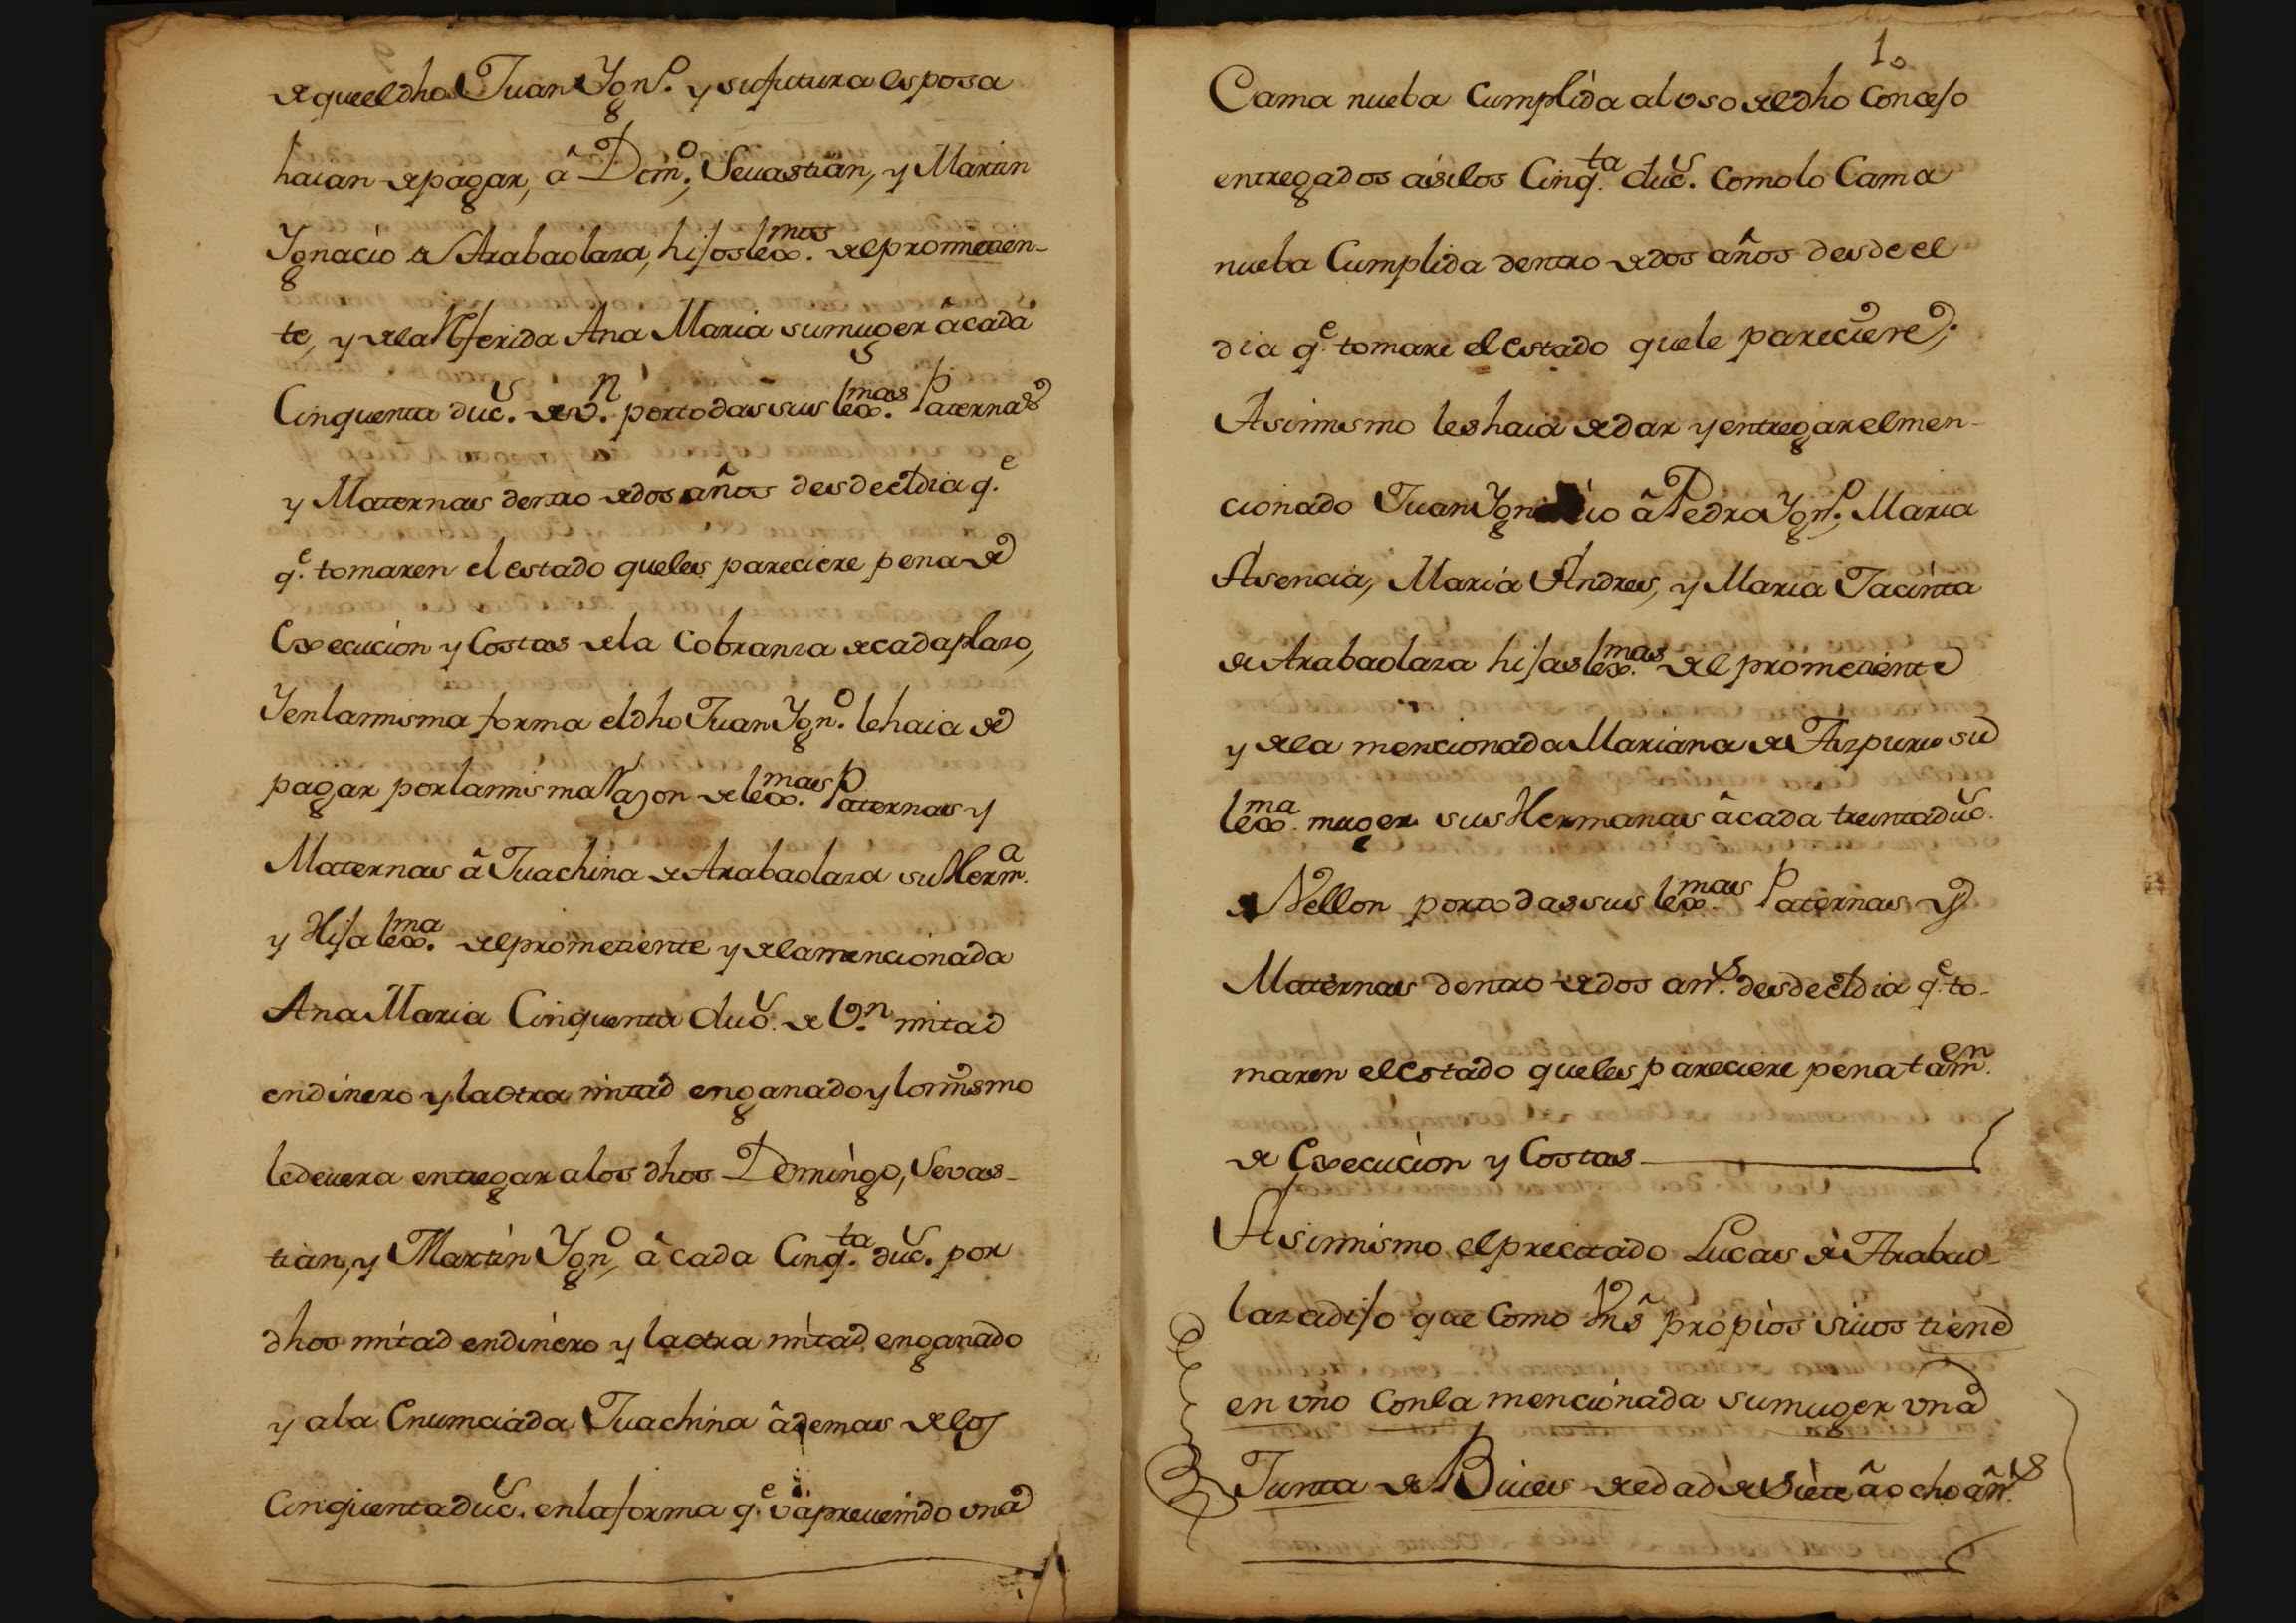 de que el dho Juan Ygn.º y su futura esposa
haian de pagar, â Dom.º, Sevastian, y Martin
Ygnacio de Arabaolaza, hijos lex.mos del prometien-
te, y de la Referida Ana Maria su muger â cada
Cinquenta duc.s de v.n por todas sus lex.mas Paternas
y Maternas dentro de dos años desde el dia q.e
q.e tomaren el estado que les pareciere pena de
Execucion y Costas de la Cobranza de cada plazo,
Y en la misma forma el dho Juan Ygn.º le haia de
pagar por la misma Razon de lex.mas Paternas y
Maternas â Juachina de Arabaolaza su Herm.a
y Hija lex.ma del prometiente y de la mencionada
Ana Maria Cinquenta duc.s de V.n mitad
en dinero y la otra mitad en ganado y lo mismo
le devera entregar a los dhos Domingo, Sevas-
tian, y Martin Ygn.º, â cada Cinq.ta duc.s por
dhos mitad en dinero y la otra mitad en ganado
y a la Enunciada Juachina âdemas de los
Cinquenta duc.s en la forma q.e va prevenido una
1o
Cama nueba Cumplida al uso del dho Concejo
entregados asi los Cinq.ta duc.s como lo Cama
nueba Cumplida dentro de dos años desde el
dia q.e tomare el estado que le pareciere;
Asimismo les haia de dar y entregar el men-
cionado Juan Ygnacio â Pedro Ygn.º, Maria
Asencia, Maria Andres, y Maria Jacinta
de Arabaolaza hijas lex.mas del prometiente
y de la mencionada Mariana de Aizpuru su
lex.ma muger sus Hermanas â cada treinta duc.s
de Vellon por todas sus lex.mas Paternas y
Maternas dentro de dos an.s desde el dia q.e to-
maren el estado que les pareciere pena tam.en
de Execucion y Costas
Asimismo el precitado Lucas de Arabao-
laza dijo que Como Vns propios suios tiene
en uno Con la mencionada su muger una
Junta de Buies de edad de Siete â ocho añ.s